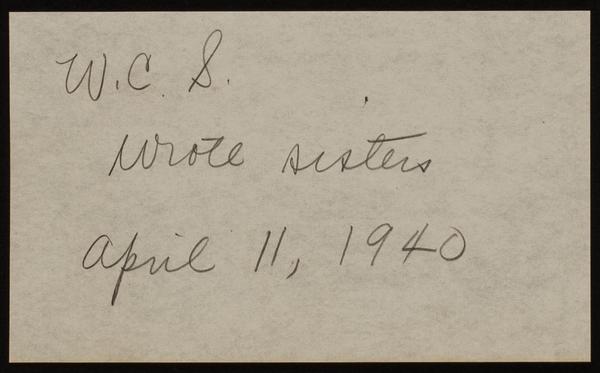 W.C. S.
Wrote sisters
April 11, 1940